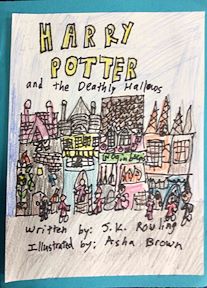 HARRY
POTTER
and the Deathly Hallows
written by: J.K. Rowling
Illustrated by: Asha Brown